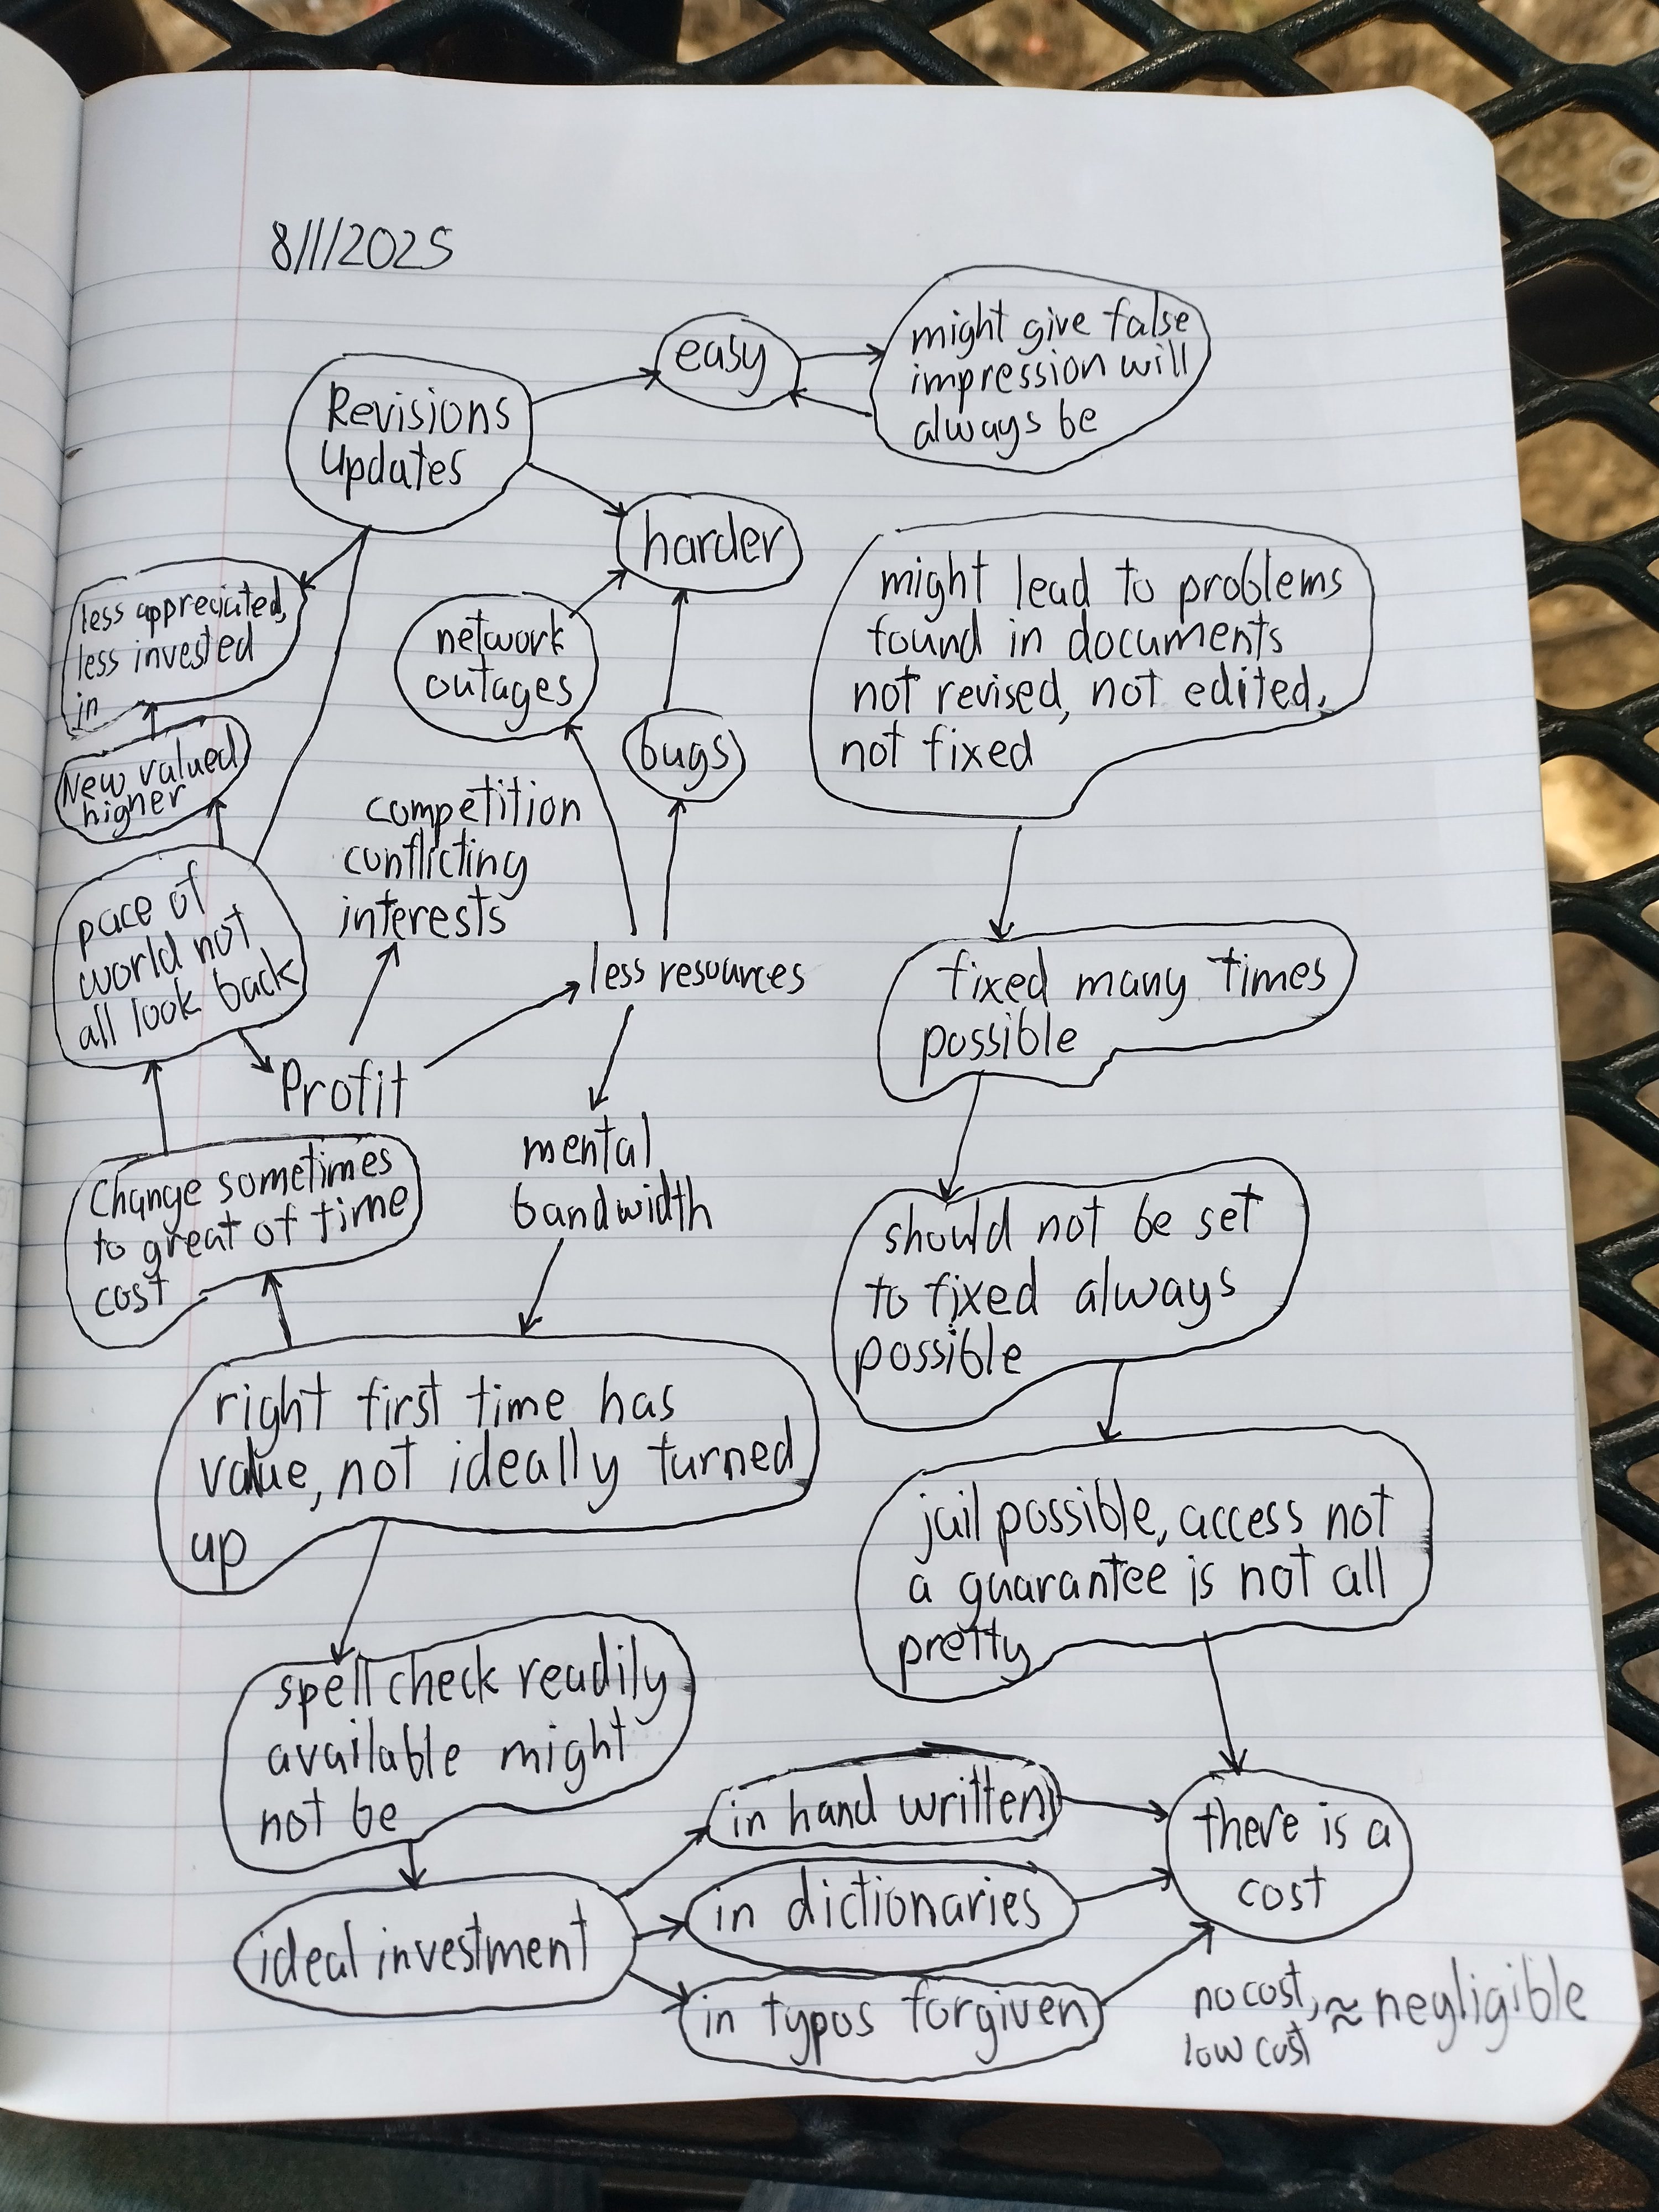 8/1/2025
Revisions
Updates
easy
might give false
impression will
always be
harder
less appreciated,
less invested
in
New valued
higher
network
outages
bugs
might lead to problems
found in documents
not revised, not edited,
not fixed
competition
conflicting
interests
pace of
world not
all look back
less resources
Profit
fixed many times
possible
Change sometimes
to great of time
cost
mental
bandwidth
should not be set
to fixed always
possible
right first time has
value, not ideally turned
up
jail possible, access not
a guarantee is not all
pretty
spell check readily
available might
not be
ideal investment
in hand written
in dictionaries
in typos forgiven
there is a
cost
no cost, ≈ negligible
low cost